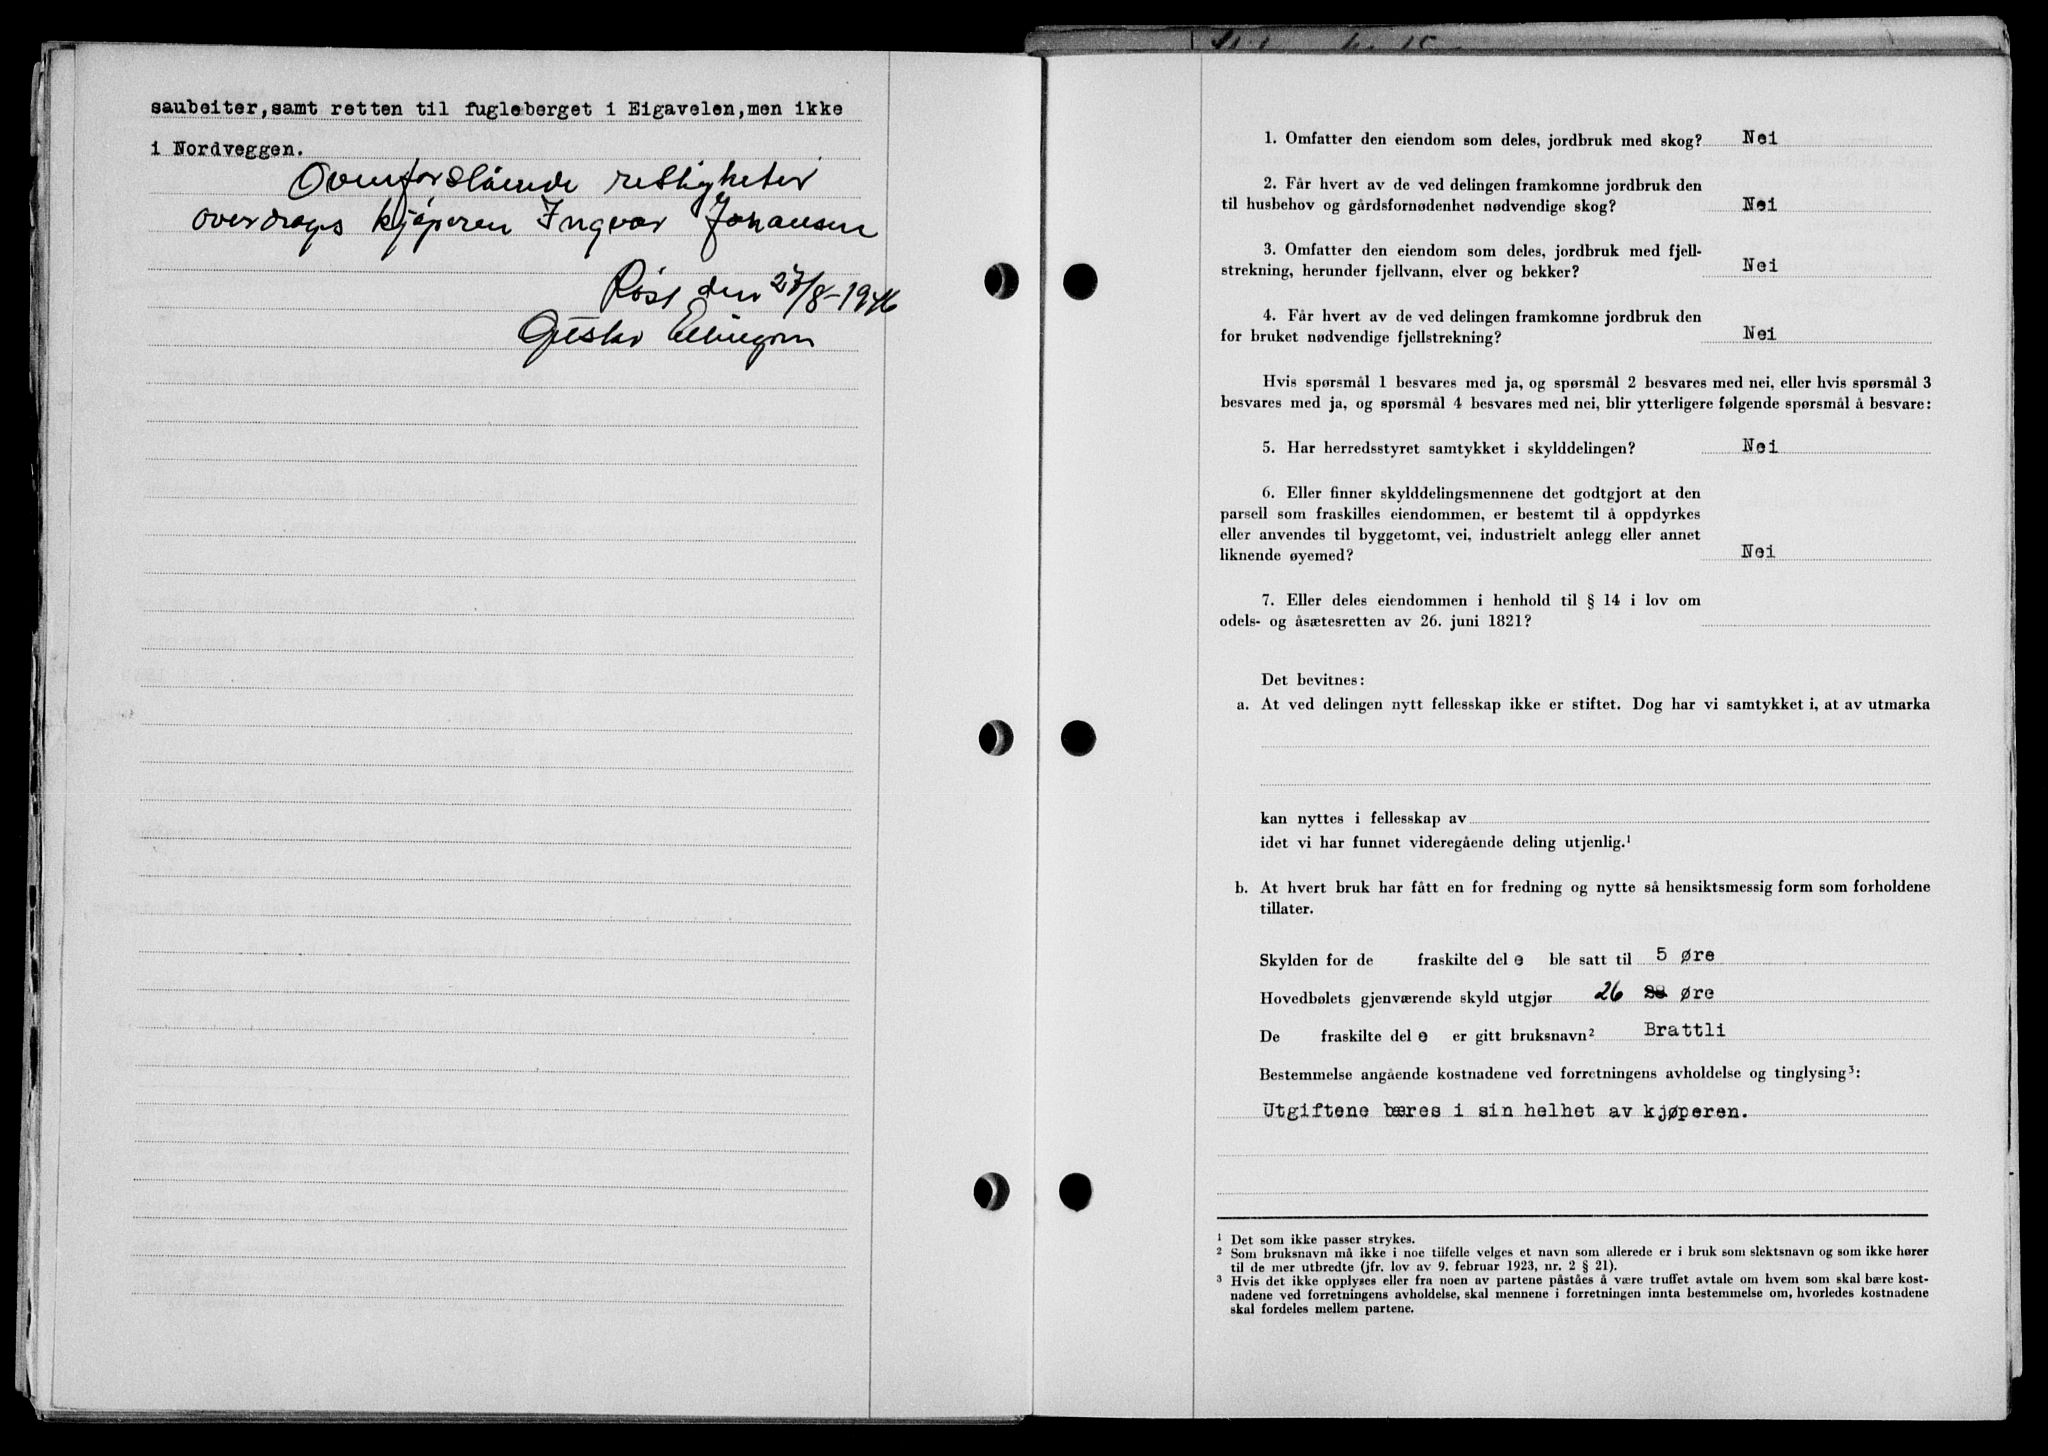 saubeiter, samt retten til fugleberget i Eigavelen, men ikke
i Nordveggen.
Ovenforstående rettigheter
overdrags kjøperen Ingvar Johansen
Røst den 27/8-1946
Gustav Ellingsen
1. Omfatter den eiendom som deles, jordbruk med skog? Nei
2. Får hvert av de ved delingen framkomne jordbruk den
til husbehov og gårdsfornødenhet nødvendige skog? Nei
3. Omfatter den eiendom som deles, jordbruk med fjell-
strekning, herunder fjellvann, elver og bekker? Nei
4. Får hvert av de ved delingen framkomne jordbruk den
for bruket nødvendige fjellstrekning? Nei
Hvis spørsmål 1 besvares med ja, og spørsmål 2 besvares med nei, eller hvis spørsmål 3
besvares med ja, og spørsmål 4 besvares med nei, blir ytterligere følgende spørsmål å besvare:
5. Har herredsstyret samtykket i skylddelingen? Nei
6. Eller finner skylddelingsmennene det godtgjort at den
parsell som fraskilles eiendommen, er bestemt til å oppdyrkes
eller anvendes til byggetomt, vei, industrielt anlegg eller annet
liknende øyemed? Nei
7. Eller deles eiendommen i henhold til § 14 i lov om
odels- og åsætesretten av 26. juni 1821?
Det bevitnes:
a. At ved delingen nytt fellesskap ikke er stiftet. Dog har vi samtykket i, at av utmarka
kan nyttes i fellesskap av
idet vi har funnet videregående deling utjenlig.¹
b. At hvert bruk har fått en for fredning og nytte så hensiktsmessig form som forholdene
tillater.
Skylden for de fraskilte del e ble satt til 5 øre
Hovedbølets gjenværende skyld utgjør 26 28 øre
De fraskilte del e er gitt bruksnavn² Brattli
Bestemmelse angående kostnadene ved forretningens avholdelse og tinglysing³:
Utgiftene bæres i sin helhet av kjøperen.
¹ Det som ikke passer strykes.
² Som bruksnavn må ikke i noe tilfelle velges et navn som allerede er i bruk som slektsnavn og som ikke hører
til de mer utbredte (jfr. lov av 9. februar 1923, nr. 2 § 21).
³ Hvis det ikke opplyses eller fra noen av partene påståes å være truffet avtale om hvem som skal bære kost-
nadene ved forretningens avholdelse, skal mennene i forretningen innta bestemmelse om, hvorledes kostnadene
skal fordeles mellem partene.